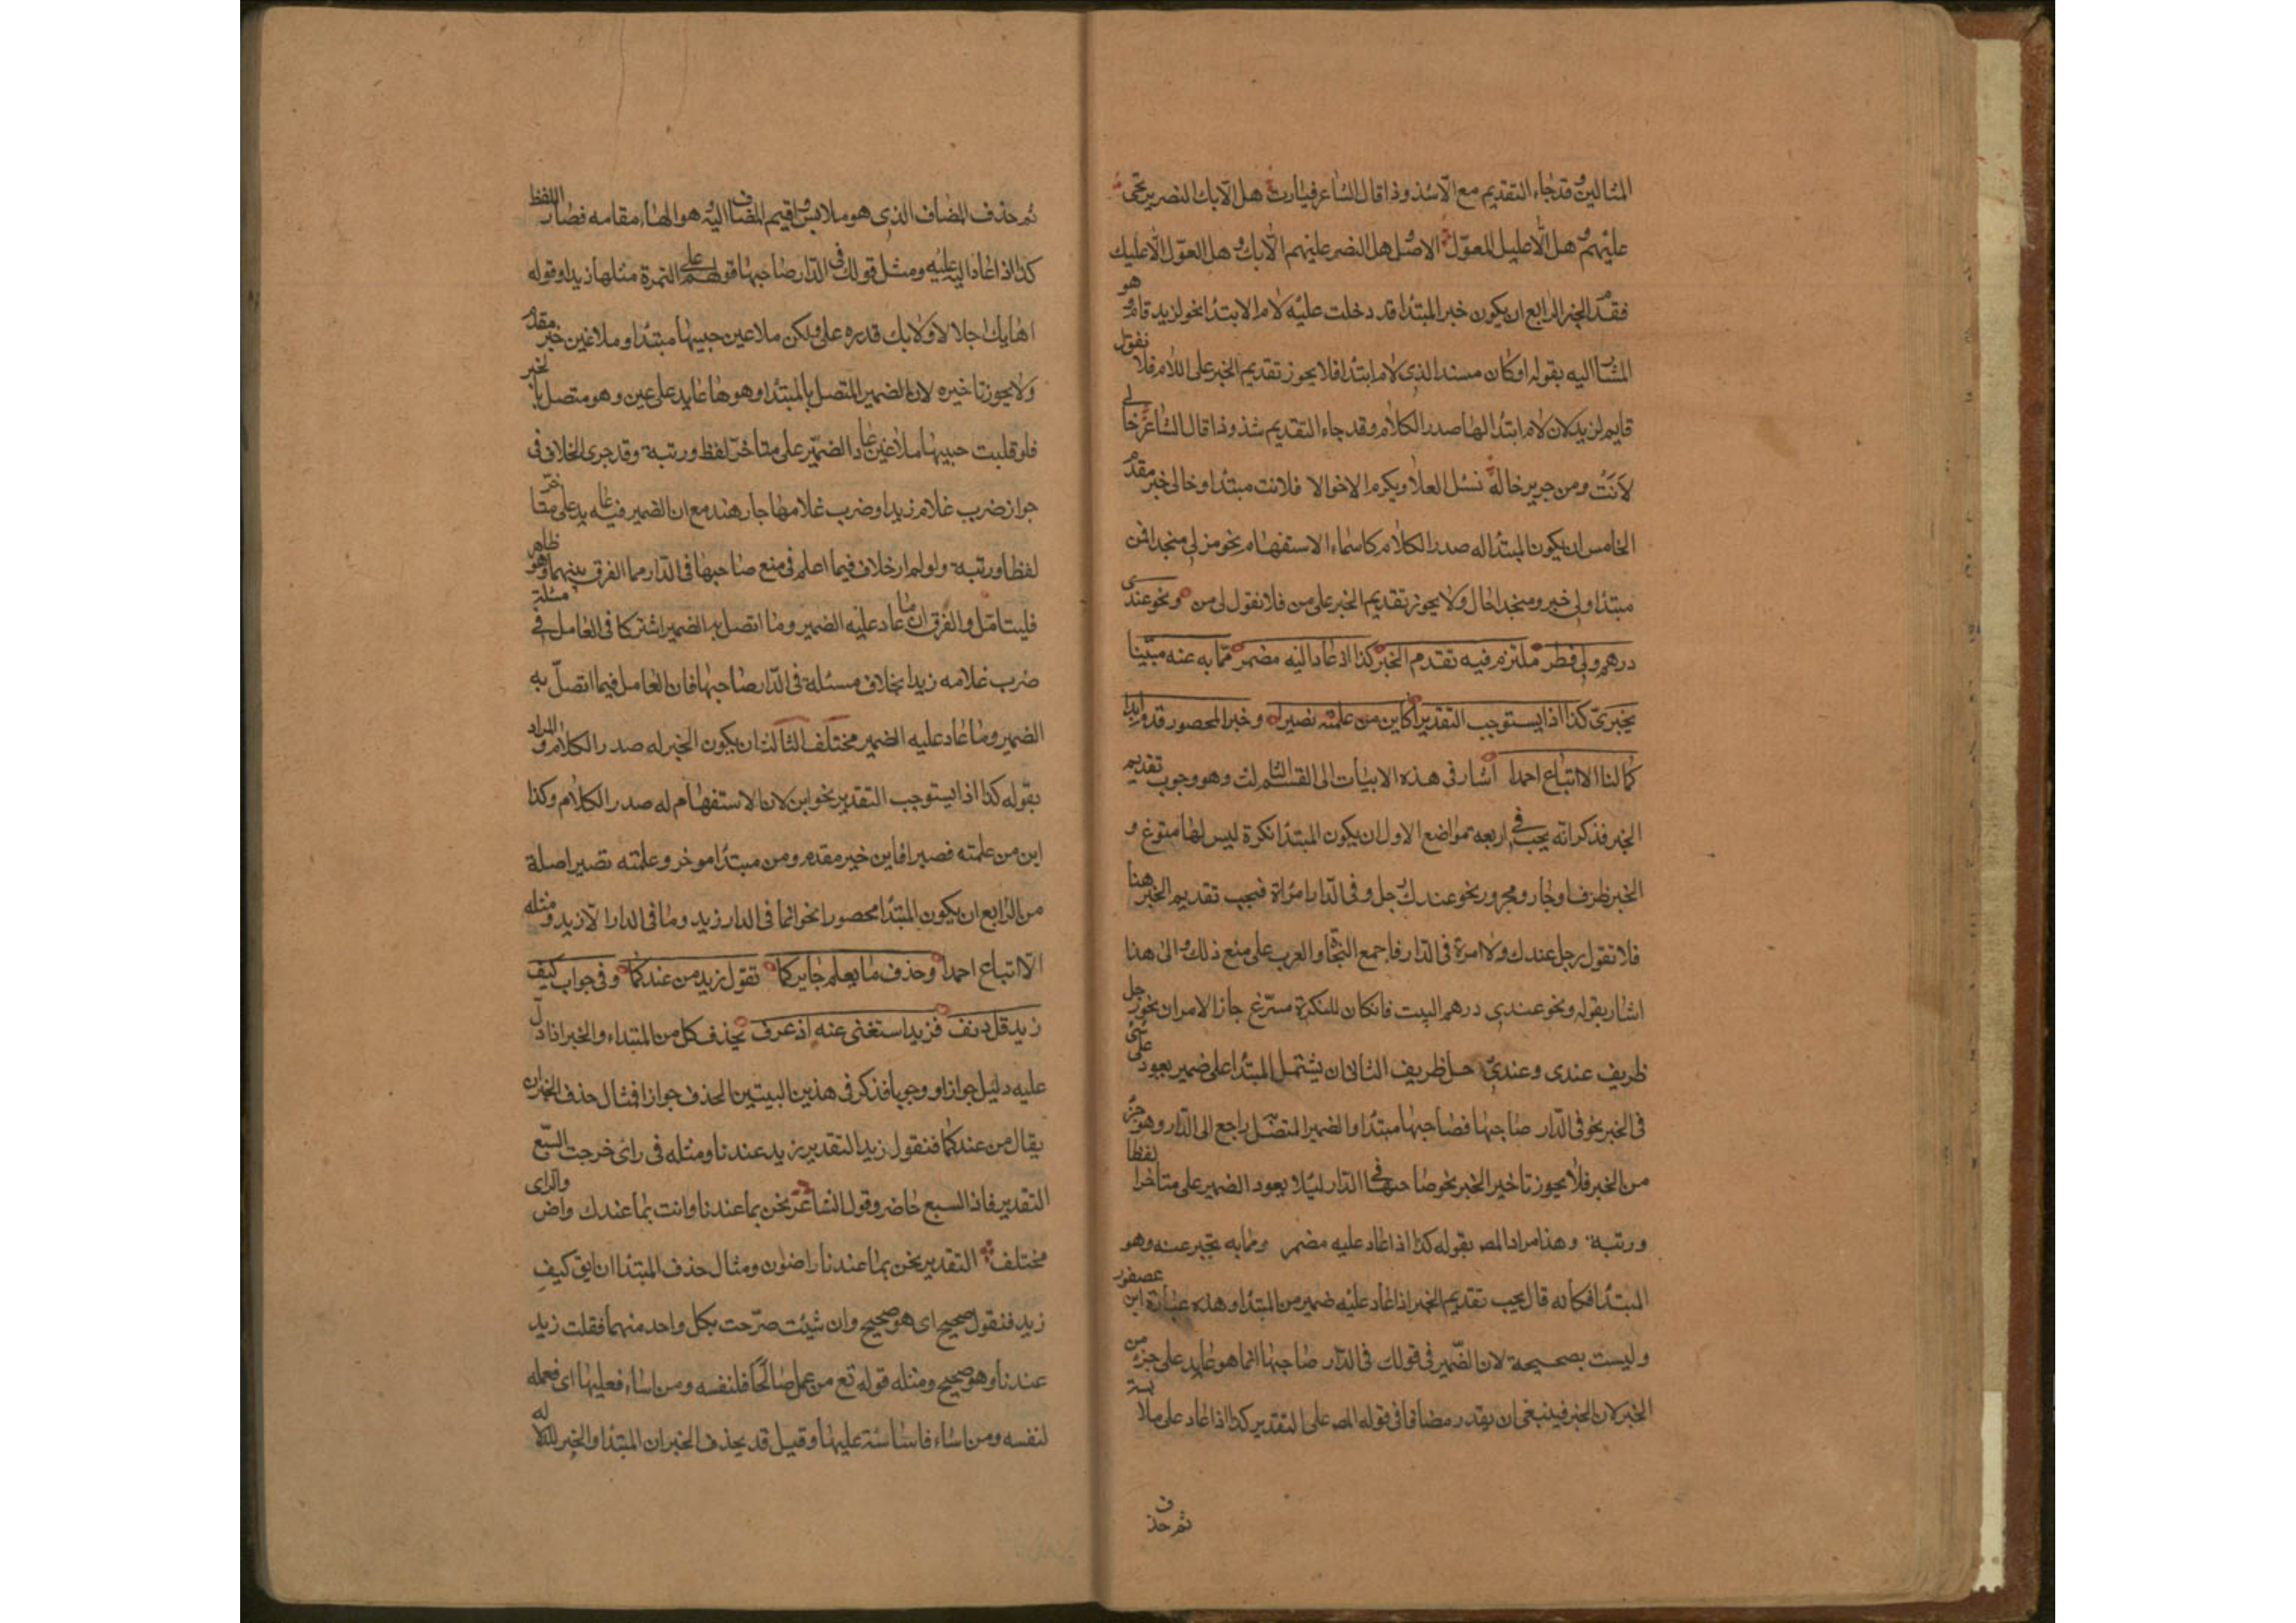 المثالين وقد جاء التقديم مع الا شذوذا قال الشاعر فيارب هل الا بك النصر يرتجى
عليهم وهل الا عليك المعول الاصل هل النصر عليهم الا بك وهل المعول الا عليك
فقدم الخبر الرابع ان يكون خبر المبتدا قد دخلت عليه لام الابتدا نحو لزيد قام وهو
المشار اليه بقوله او كان مسندا لذى لام ابتدا فلا يجوز تقديم الخبر على اللام فلا نقول
قايم لزيد لان لام ابتدا لها صدر الكلام وقد جاء التقديم شذوذا قال الشاعر خالى
لانت ومن جرير خاله نسئل العلا ويكرم الاخوالا فلانت مبتدا وخالى خبر مقدم
الخامس ان يكون المبتدا له صدر الكلام كاسماء الاستفهام نحو من لى منجدا فمن
مبتدا ولى خبر ومنجدا حال ولا يجوز تقديم الخبر على من فلا نقول لى من ونحو عندى
درهم ولى فطر ملتزم فيه تقدم الخبر كذا اذ عاد اليه مضمر مما به عنه مبينا
يخبر كذا اذا يستوجب التقدير كاين من علمته نصيرا وخبر المحصور قدم ابدا
كما لنا الا اتباع احمدا اشار فى هذه الابيات الى القسم الثالث وهو وجوب تقديم
الخبر فذكر انه يجب فى اربعه مواضع الاول ان يكون المبتدا نكرة ليس لها مسوغ و
الخبر ظرف او جار ومجرور نحو عندك رجل وفى الدار امراة فيجب تقديم الخبر هنا
فلا تقول رجل عندك ولا امرة فى الدار فاجمع النحا والعرب على منع ذلك والى هذا
اشار بقوله ونحو عندى درهم البيت فان كان للنكرة مسوغ جاز الامران نحو رجل
ظريف عندى وعندى رجل ظريف الثانى ان يشتمل المبتدا على ضمير يعود على شئ
فى الخبر نحو فى الدار صاحبها فصاحبها مبتدا والضمير المتصل به راجع الى الدار وهو جزء
من الخبر فلا يجوز تاخير الخبر نحو صاحبها فى الدار لئلا يعود الضمير على متاخر لفظا
ورتبة وهذا مراد المص بقوله كذا اذا عاد عليه مضمر ومما به يخبر عنه وهو
المبتدا فكانه قال يجب تقديم الخبر اذا عاد عليه ضمير من المبتدا وهذه عبارة ابن عصفور
وليست بصحيحة لان الضمير فى قولك فى الدار صاحبها انما هو عايد على جزء من
الخبر لان الخبر فينبغى ان يقدر مضافا فى قوله المص على التقدير كذا اذا عاد على ملابسة
ثم حذف
ثم حذف المضاف الذى هو ملابس واقيم المضاف اليه هو الهاء مقامه فصار اللفظ
كذا اذا عاد اليه عليه ومثل قولك فى الدار صاحبها قولهم على التمرة مثلها زبدا وقوله
اهابك اجلالا ولا بك قدره على ولكن ملا عين حبيبها مبتدا وملا عين خبر مقدم
ولا يجوز تاخيره لان الضمير المتصل بالمبتدا وهو ها عايد على عين وهو متصل بالخبر
فلو قلبت حبيبها ملا عين عاد الضمير على متاخر لفظ ورتبة وقد جرى الخلاف فى
جواز ضرب غلام زيدا وضرب غلامها جار هند مع ان الضمير فيه عايد على متاخر
لفظا ورتبة ولو لم ار خلاف فيما اعلم فى منع صاحبها فى الدار مما الفرق بينهما وهو ظاهر
فليتامل والفرق ان ما عاد عليه الضمير وما اتصل به الضمير اشتركا فى العامل فى مسئلة
ضرب غلامه زيدا بخلاف مسئلة فى الدار صاحبها فان العامل فيما اتصل به
الضمير وما عاد عليه الضمير مختلف الثالث ان يكون الخبر له صدر الكلام والمراد
بقوله كذا اذا يستوجب التقدير نحو اين لان الاستفهام له صدر الكلام وكذا
اين من علمته نصيرا فاين خبر مقدم ومن مبتدا موخر وعلمته نصيرا صلة
من الرابع ان يكون المبتدا محصورا نحو انما فى الدار زيد وما فى الدار الا زيد ومثله
الا اتباع احمدا وحذف ما يعلم جايز كما تقول زيد من عندكما وفى جواب كيف
زيد قل دنف فزيد استغنى عنه اذ عرف يحذف كل من المبتداء والخبر اذا دل
عليه دليل جوازا ووجوبا فذكر فى هذين البيتين الحذف جوازا فمثال حذف الخبر ان
يقال من عندكما فنقول زيد التقدير زيد عندنا ومثله فى راى خرجت السبع
التقدير فاذا السبع حاضر وقول الشاعر نحن بما عندنا وانت بما عندك راض والراى
مختلف التقدير نحن بما عندنا راضون ومثال حذف المبتدا ان يق كيف
زيد فنقول صحيح اى هو صحيح وان شئت صرحت بكل واحد منهما فقلت زيد
عندنا وهو صحيح ومثله قوله تع من عمل صالحا فلنفسه ومن اساء فعليها اى فعمله
لنفسه ومن اساء فاساسئة عليها وقيل قد يحذف الخبر ان المبتدا والخبر للدلالة